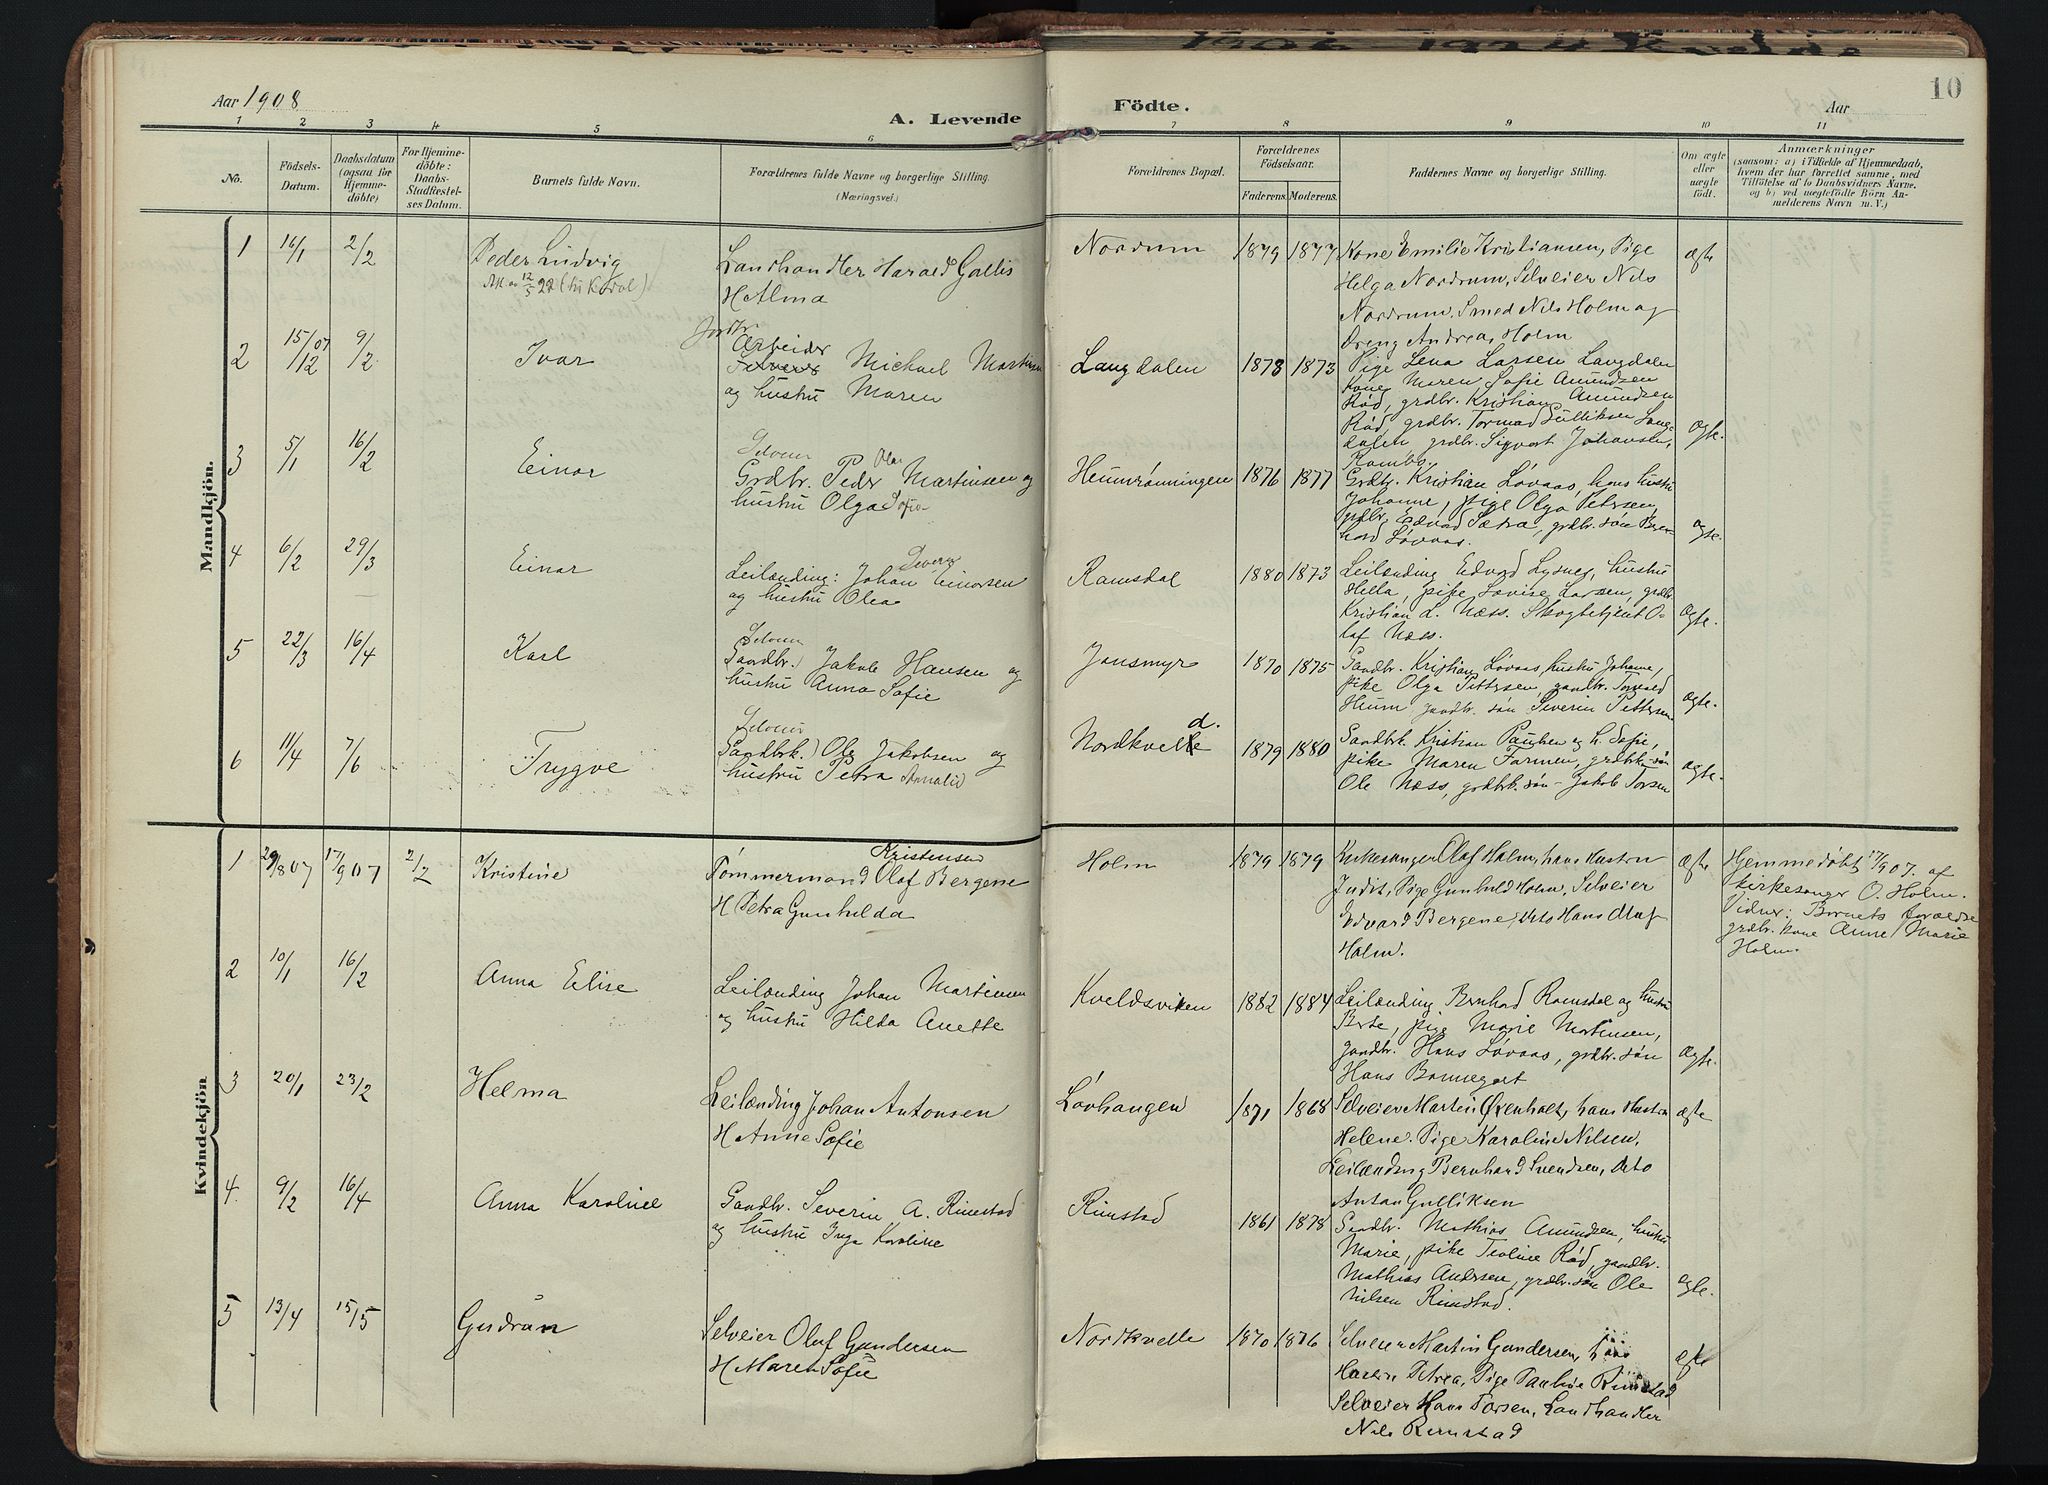 1906 1924 Kvelde
10
Aar 1908
A. Levende
Födte.
Aar
1 2 3 4 5 6 7 8 9 10 11
No.
Födsels-
Datum.
Daabsdatum
(ogsaa for
Hjemme-
döbte)
For Hjemme-
döbte:
Daabs-
Stadfæstel-
ses Datum.
Barnets fulde Navn.
Forældrenes fulde Navne og borgerlige Stilling.
(Næringsvei.)
Forældrenes Bopæl.
Forældrenes
Födselsaar.
Faderens.
Moderens.
Faddernes Navne og borgerlige Stilling.
Om ægte
eller
uægte
födt.
Anmærkninger
(saasom: a) i Tilfælde af Hjemmedaab,
hvem der har forrettet samme, med
Tilföielse af to Daabsvidners Navne,
og b) ved uægtefödte Börn An-
melderens Navn m. V.)
Mandkjön.
1 16/1 2/2 Peder Ludvig
Landhandler Harald Gallis
H Alma
Nordrum 1879 1877
Kone Emilie Kristiansen, Pige
Helga Nordrum, Selveier Nils
Nordrum, Smed Nils Holm og
Dreng Andreas Holm
ægte
2 15/12 07 9/2 Ivar
Arbeider
Michael Martinsen
og hustru Maren
Langdalen 1878 1873
Pige Lena Larsen Langdalen
Kone Maren Sofie Amundsen
Rød, grdbr. Kristian Amundsen
Rød, grdbr. Tormod Gulliksen Lang-
dalen grdbr. Sigvart Johansen,
Rambo.
ægte.
3 5/1 16/2 Einar
Grdbr. Peder Olai Martinsen og
hustru Olga Sofie
Heumrønningen 1876 1877
Grdbr. Kristian Løvaas, hans hustru
Johanne, pige Olga Petersen,
grdbr. Edvard Sætra, grdbr. søn Bern-
hard Løvaas.
ægte.
4 6/2 29/3 Einar
Leilænding: Johan Einarsen
og hustru Olea
Ramsdal 1880 1873
Leilænding Edvard Lysnes, hustru
Hella, pike Lovise Larsen, grdbr.
Kristian L. Næss. Skogbetjent O-
laf Næss.
Ægte.
5 22/3 16/4 Karl
Gaardbr.) Jakob Hansen og
hustru Anna Sofie
Jonsmyr 1870 1875
Gaardbr. Kristian Løvaas, hustru Johanne,
pike Olga Pettersen, gaardbr. Torvald
Heum gaardbr. søn Severin Pettersen
Ægte.
6 11/4 7/6 Trygve
Gaardbrk.) Ole Jakobsen og
hustru Petra Amalie
d.
Nordkvelle 1879 1880
Gaardbrk. Kristian Paulsen og h. Sofie,
pike Maren Farmen, grdbrk. søn
Ole Næss, grdbrk. søn - Jakob Torsen
ægte.
Kvindekjön
1 29/8 07 17/9 07 2/2 Kristine
Kristensen
Tømmermand Olaf Bergene
H Petra Gunhilda
Holm 1879 1879
Kirkesanger Olaf Holm, hans Hustru
Judit, Pige Gunhild Holm, Selveier
Edvard Bergene, dito Hans Olaf
Holm.
ægte
Hjemmedøbt 17/9 07. af
kirkesanger O. Holm.
Vidner: Barnets forældre
grdbr. kone Anne Marie
Holm.
2 10/1 16/2 Anna Elise
Leilænding Johan Martinsen
og hustru Hilda Anette
Kveldsviken 1882 1884
Leilænding Bernhard Ramsdal og hustru
Berte, pige Marie Martinsen,
gaardbr. Hans Løvaas, grdbr. søn
Hans Bonnegart
Ægte.
3 20/1 23/2 Helma
Leilænding Johan Antonsen
H Anne Sofie
Løvhaugen 1871 1868
Selveier Martin Øxenholt, hans Hustru
Helene. Pige Karoline Nilsen,
Leilænding Bernhard Svendsen, dito
Anton Gulliksen
ægte
4 9/2 16/4 Anna Karoline
Gaardbr. Severin A. Rimstad
og hustru Inga Karoline
Rimstad 1861 1878
Gaardbr. Mathias Amundsen, hustru
Marie, pike Teoline Rød, gaardbr.
Mathias Andersen, grdbr. søn Ole
Nilsen Rimstad.
ægte.
5 13/4 15/5 Gudrun
Selveier Oluf Gundersen
H Maren Sofie
Nordkvelle 1870 1876
Selveier Martin Gundersen,
Hustru Petrea, Pige Pauline Rimstad
Selveier Hans Torsen, Landhandler
Nils Rimstad
ægte